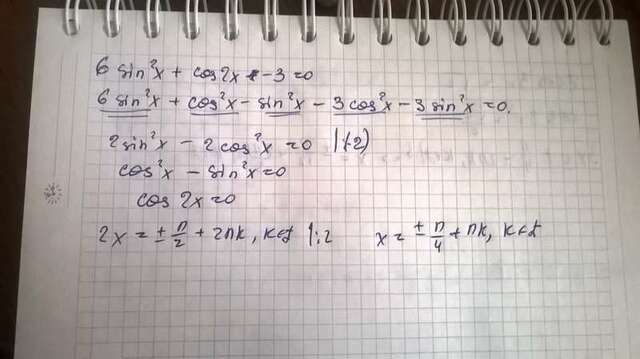 6 sin²x + cos2x - 3 = 0
6 sin²x + cos²x - sin²x - 3cos²x - 3sin²x = 0.
2sin²x - 2cos²x = 0 |:(-2)
cos²x - sin²x = 0
cos 2x = 0
2x = ± π/2 + 2πk, k∈Z |:2 x = ± π/4 + πk, k∈Z